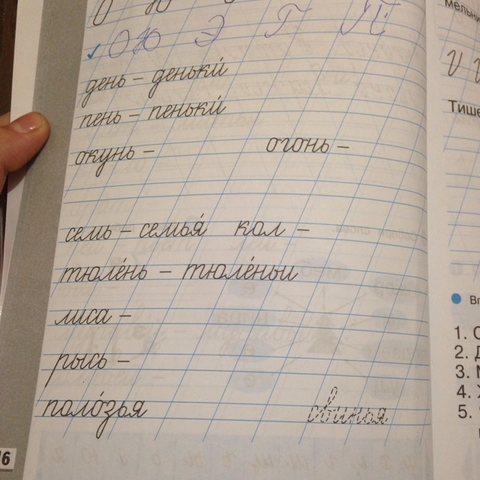 О Ю Э Г П
день – деньки́
пень – пеньки́
окунь – огонь –
семь – семья́ кол –
тюле́нь – тюле́ньи
лиса –
рысь –
поло́зья свинья
16
мельни
Тише
1. С
2. Д
3.
4.
5.